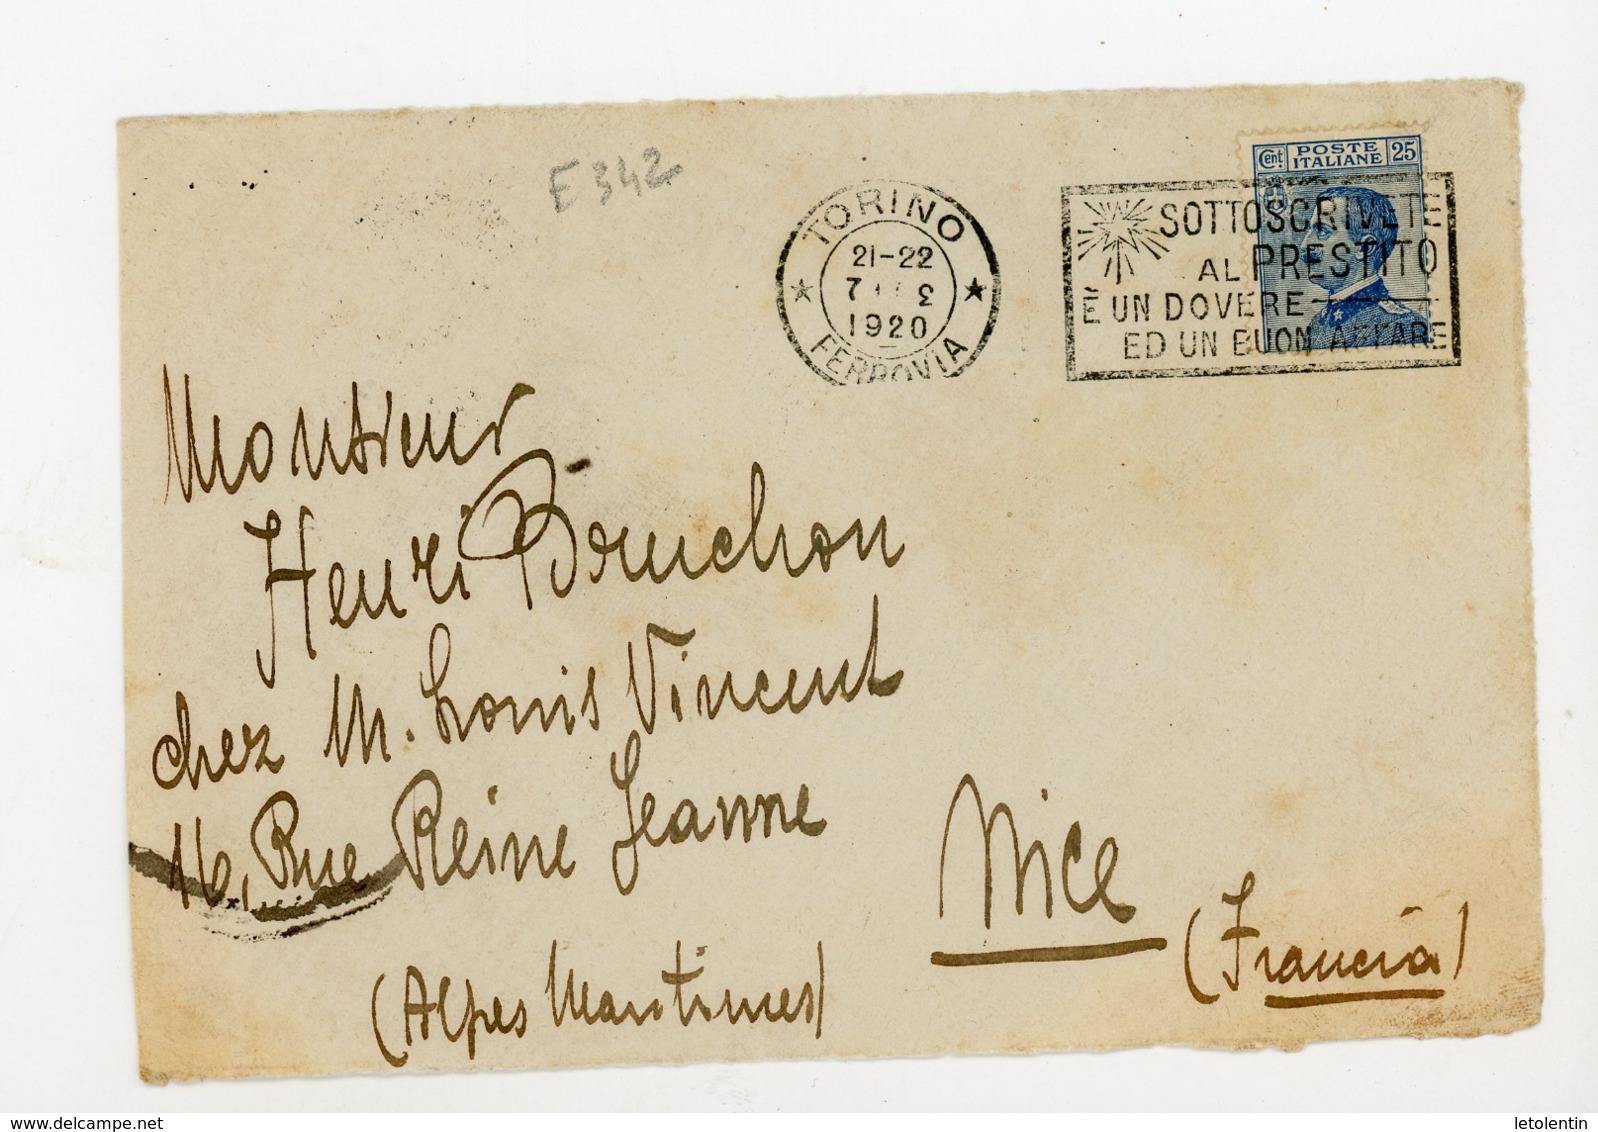 E 342
TORINO
21-22
7
1920
FERROVIA
Cent POSTE ITALIANE 25
SOTTOSCRIVETE
AL PRESTITO
È UN DOVERE
ED UN BUON AFFARE
Monsieur
Henri Bouchon
chez M. Louis Vincent
16, Rue Reine Jeanne
Nice
(Alpes Maritimes)
(Francia)
letolentin